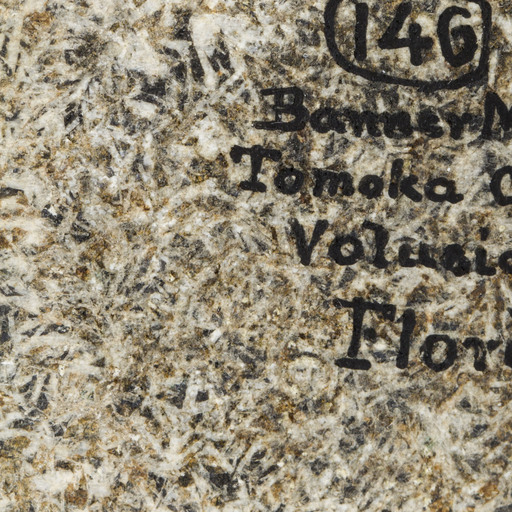 146
Banner M
Tomoka C
Volusia
Flori